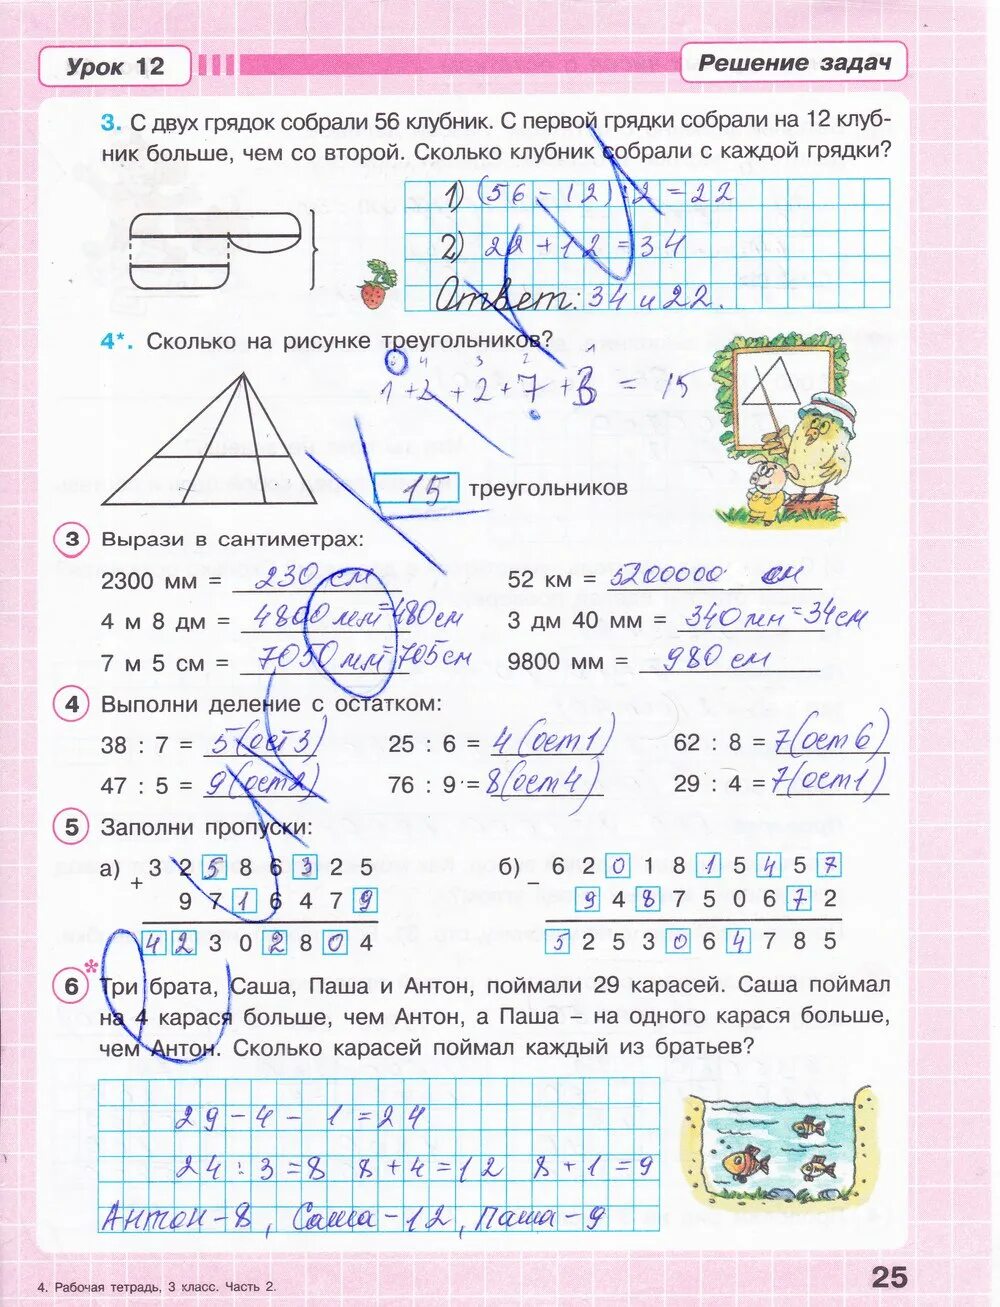 Урок 12
Решение задач
3. С двух грядок собрали 56 клубник. С первой грядки собрали на 12 клуб-
ник больше, чем со второй. Сколько клубник собрали с каждой грядки?
1) (56 - 12) : 2 = 22
2) 22 + 12 = 34
Ответ: 34 и 22.
4*. Сколько на рисунке треугольников?
4 3 2 1
1 + 2 + 2 + 7 + 3 = 15
15 треугольников
3 Вырази в сантиметрах:
2300 мм = 230 см 52 км = 5200000 см
4 м 8 дм = 4800 мм = 480 см 3 дм 40 мм = 340 мм = 34 см
7 м 5 см = 7050 мм = 705 см 9800 мм = 980 см
4 Выполни деление с остатком:
38 : 7 = 5 (ост 3) 25 : 6 = 4 (ост 1) 62 : 8 = 7 (ост 6)
47 : 5 = 9 (ост 2) 76 : 9 = 8 (ост 4) 29 : 4 = 7 (ост 1)
5 Заполни пропуски:
а) + 3 2 5 8 6 3 2 5 б) 6 2 0 1 8 1 5 4 5 7
9 7 1 6 4 7 9 9 4 8 7 5 0 6 7 2
4 2 3 0 2 8 0 4 5 2 5 3 0 6 4 7 8 5
6* Три брата, Саша, Паша и Антон, поймали 29 карасей. Саша поймал
на 4 карася больше, чем Антон, а Паша – на одного карася больше,
чем Антон. Сколько карасей поймал каждый из братьев?
29 - 4 - 1 = 24
24 : 3 = 8 8 + 4 = 12 8 + 1 = 9
Антон - 8, Саша - 12, Паша - 9
4. Рабочая тетрадь, 3 класс. Часть 2.
25